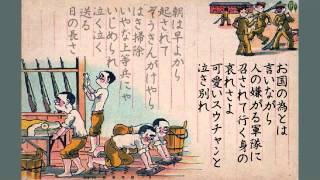 お国の為とは
言いながら
人の嫌がる軍隊に
召されて行く身の
哀れさよ
可愛いスウチャンと
泣き別れ
朝は早よから
起されて
ぞうきんがけやら
はき掃除
いやな上等兵にゃ
いじめられ
泣く泣く
送る
日の長さ